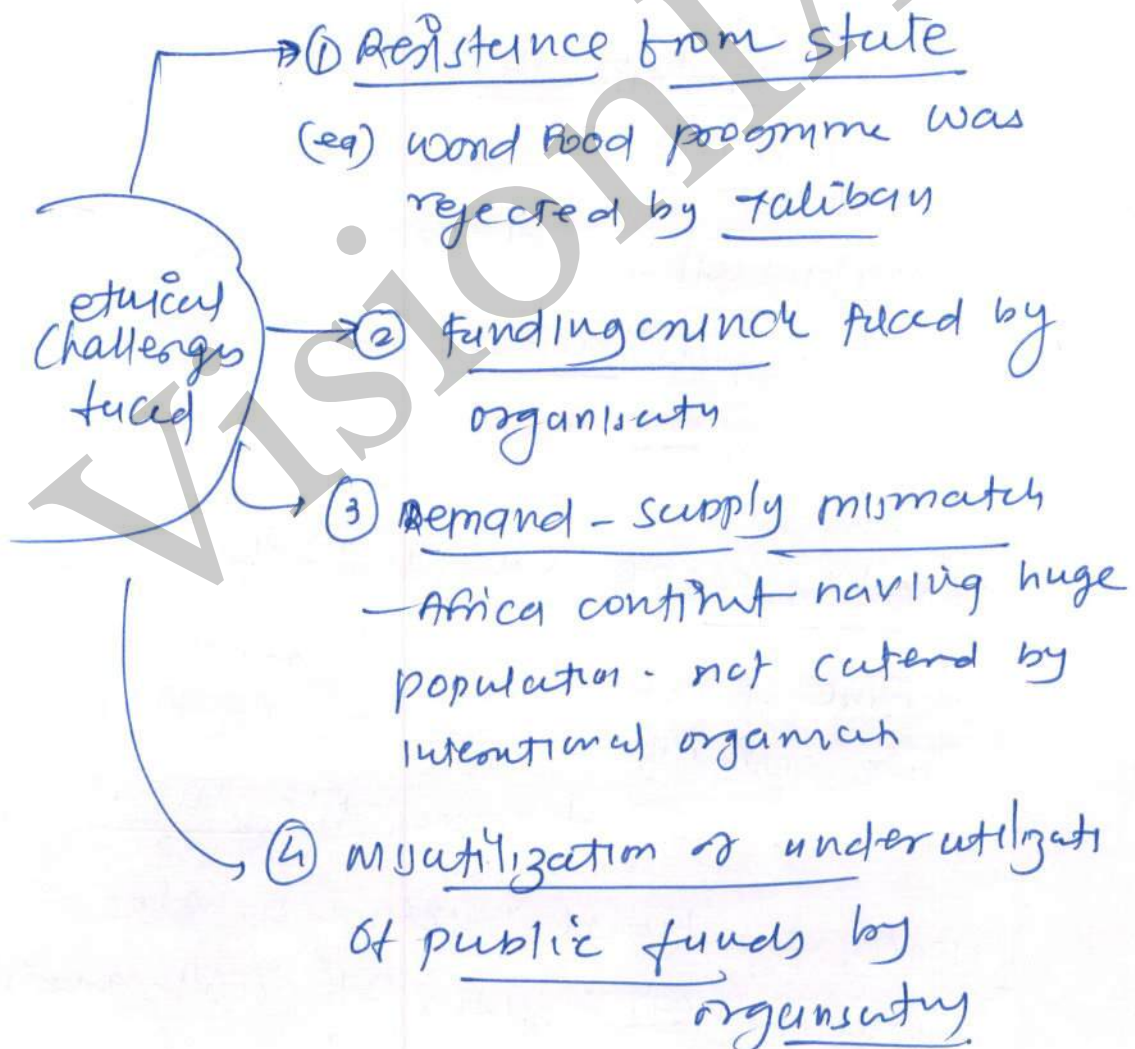 ① Resistance from state
(eg) world Food programme was
rejected by Taliban
ethical
Challenges
faced
② Funding crunch faced by
organisatn
③ Demand - supply mismatch
- Africa contint having huge
population - not catered by
International organisatn
④ Misutilization or underutilizati
of public funds by
organisatns
Vision